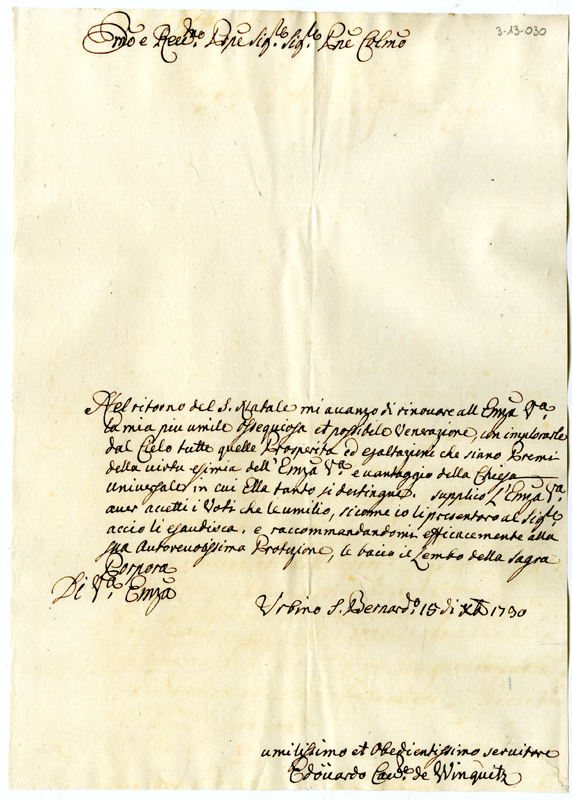 3-13-030
Emo e Reu.mo Prpe Sig.re Sig.re Prne Colmo
Nel ritorno del S. Natale mi auanzo di rinouare all Emza Va.
La mia piu umile ossequiosa et possibile Venerazione, con implorarle
dal Cielo tutte quelle Prosperita ed esaltazione che siano Premi
della uirtu esimia dell' Emza Va. e uantaggio della Chiesa
Uniuersale in cui Ella tanto si destingue. supplico L'Emza Va
auer accetti i Voti che le umilio, sicome io li presentero al Sig.re
accio li esaudisca. e raccommandandomi efficacemente alla
sua Autoreuolissima Protezione, le bacio il Lembo della sagra
Porpora
Di Va. Emza
Urbino S. Bernard.o 15 di Xb 1730
umilissimo et Obedientissimo seruitore
Edöuardo Cau.e de Winquitz